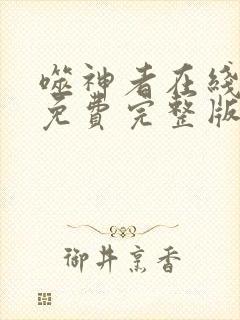 噬神者在线
免費完整版
御井烹香